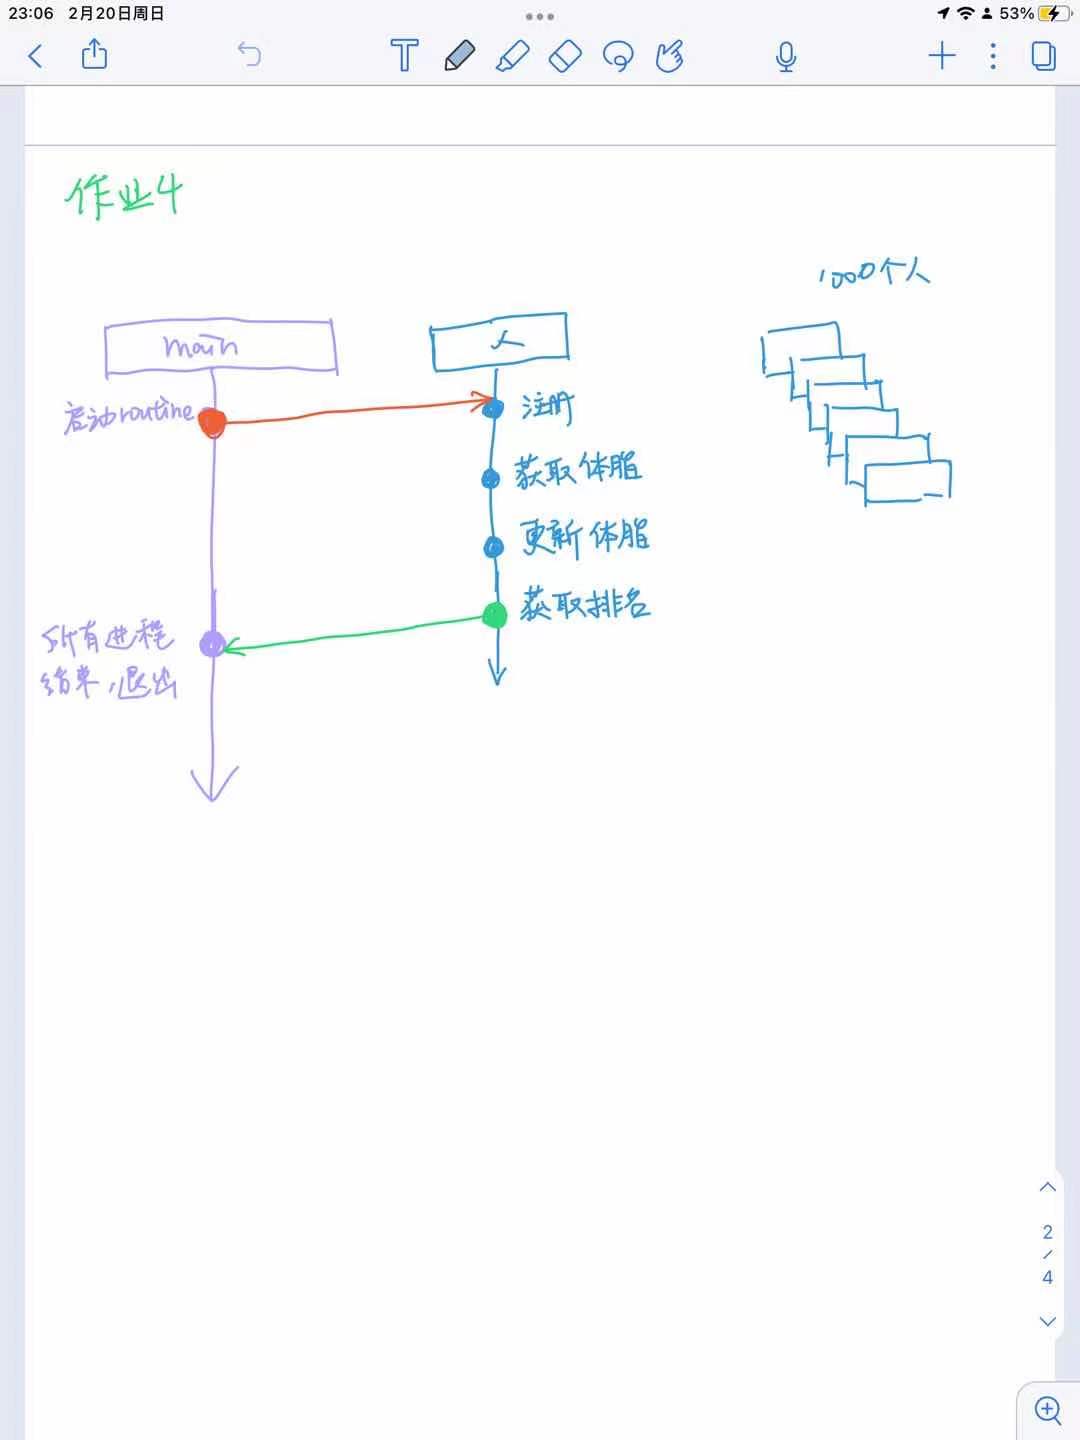 23:06 2月20日周日
53%
T
作业4
1000个人
main
人
启动routine
注册
获取体脂
更新体脂
获取排名
所有进程
结束,退出
2
/
4